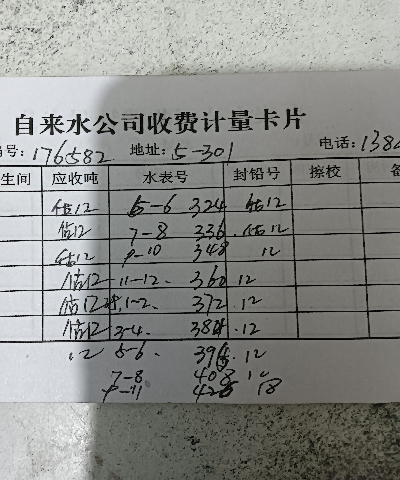 自来水公司收费计量卡片
号: 176582 地址: 5-301 电话: 138
生间 应收吨 水表号 封铅号 擦校 备
估12 5-6 324 估12
估12 7-8 336 估12
估12 9-10 348 12
估12 11-12. 360 12
估12 1-2. 372 .12
估12 3-4. 384 .12
.12 5-6. 396 .12
7-8 408 12
9-11 426 18